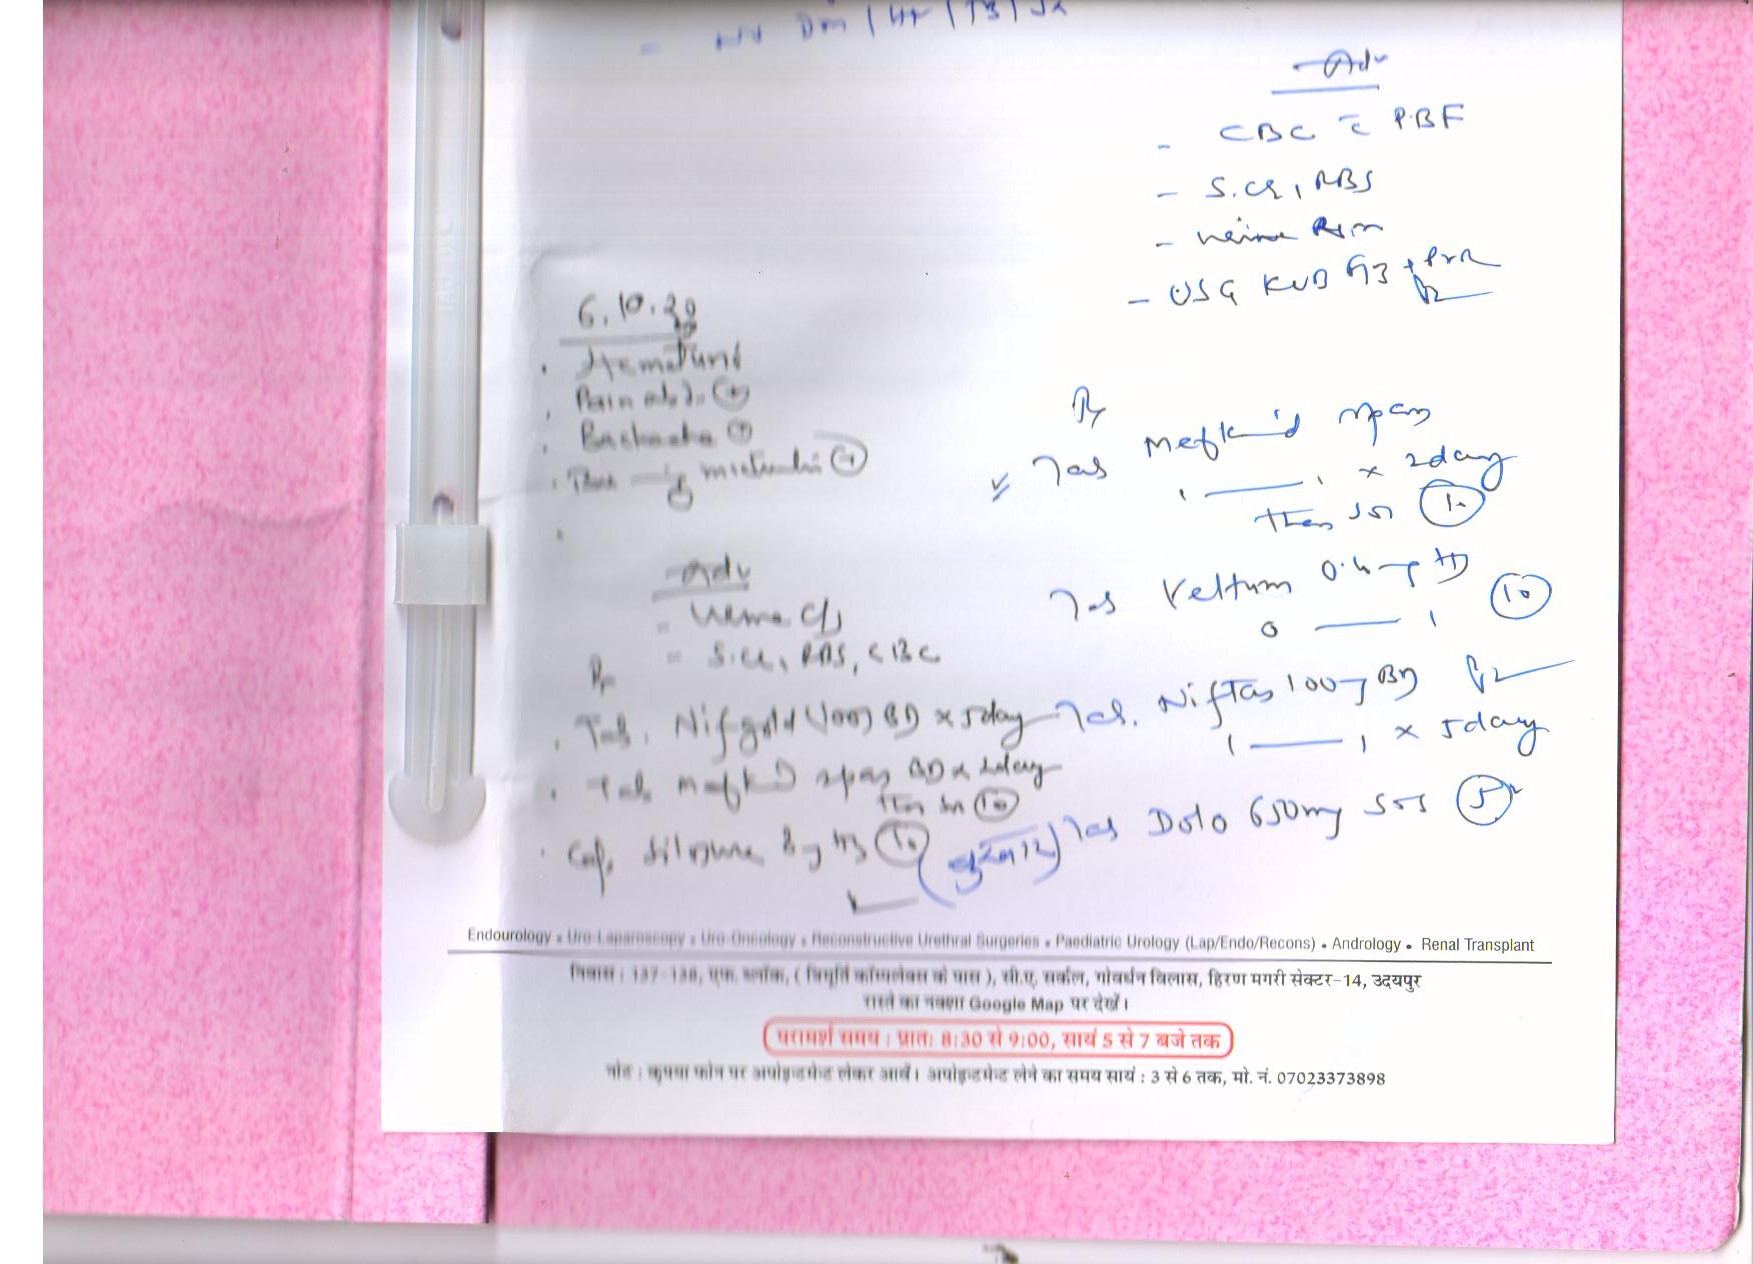 Adv
- CBC c̄ PBF
- S.Cr, RBS
- Urine R/m
- USG KUB + PVR
6.10.20
Pain abd. (+)
Backache (+)
Adv
= Urine C/S
= S.Cr, RBS, CBC
Rx
Tab. Nifgold (100) BD x 5day
Tab Mefkind spas BD x 2day
then SOS (10)
Rx
Tab Mefkind spas
1 — 1 x 2day
then SOS (10)
Tab Veltam 0.4mg HS
0 — 1 (10)
Tab. Niftas 100mg BD
1 — 1 x 5day
Tab Dolo 650mg SOS (5)
Endourology • Uro Laparoscopy • Uro Oncology • Reconstructive Urethral Surgeries • Paediatric Urology (Lap/Endo/Recons) • Andrology • Renal Transplant
निवास : 137-138, एफ. ब्लॉक, ( त्रिमूर्ति कॉम्पलेक्स के पास ), सी.ए. सर्कल, गोवर्धन विलास, हिरण मगरी सेक्टर-14, उदयपुर
रास्ते का नक्शा Google Map पर देखें।
परामर्श समय : प्रात: 8:30 से 9:00, सायं 5 से 7 बजे तक
नोट : कृपया फोन पर अपोइन्टमेन्ट लेकर आवें। अपोइन्टमेन्ट लेने का समय सायं : 3 से 6 तक, मो. नं. 07023373898